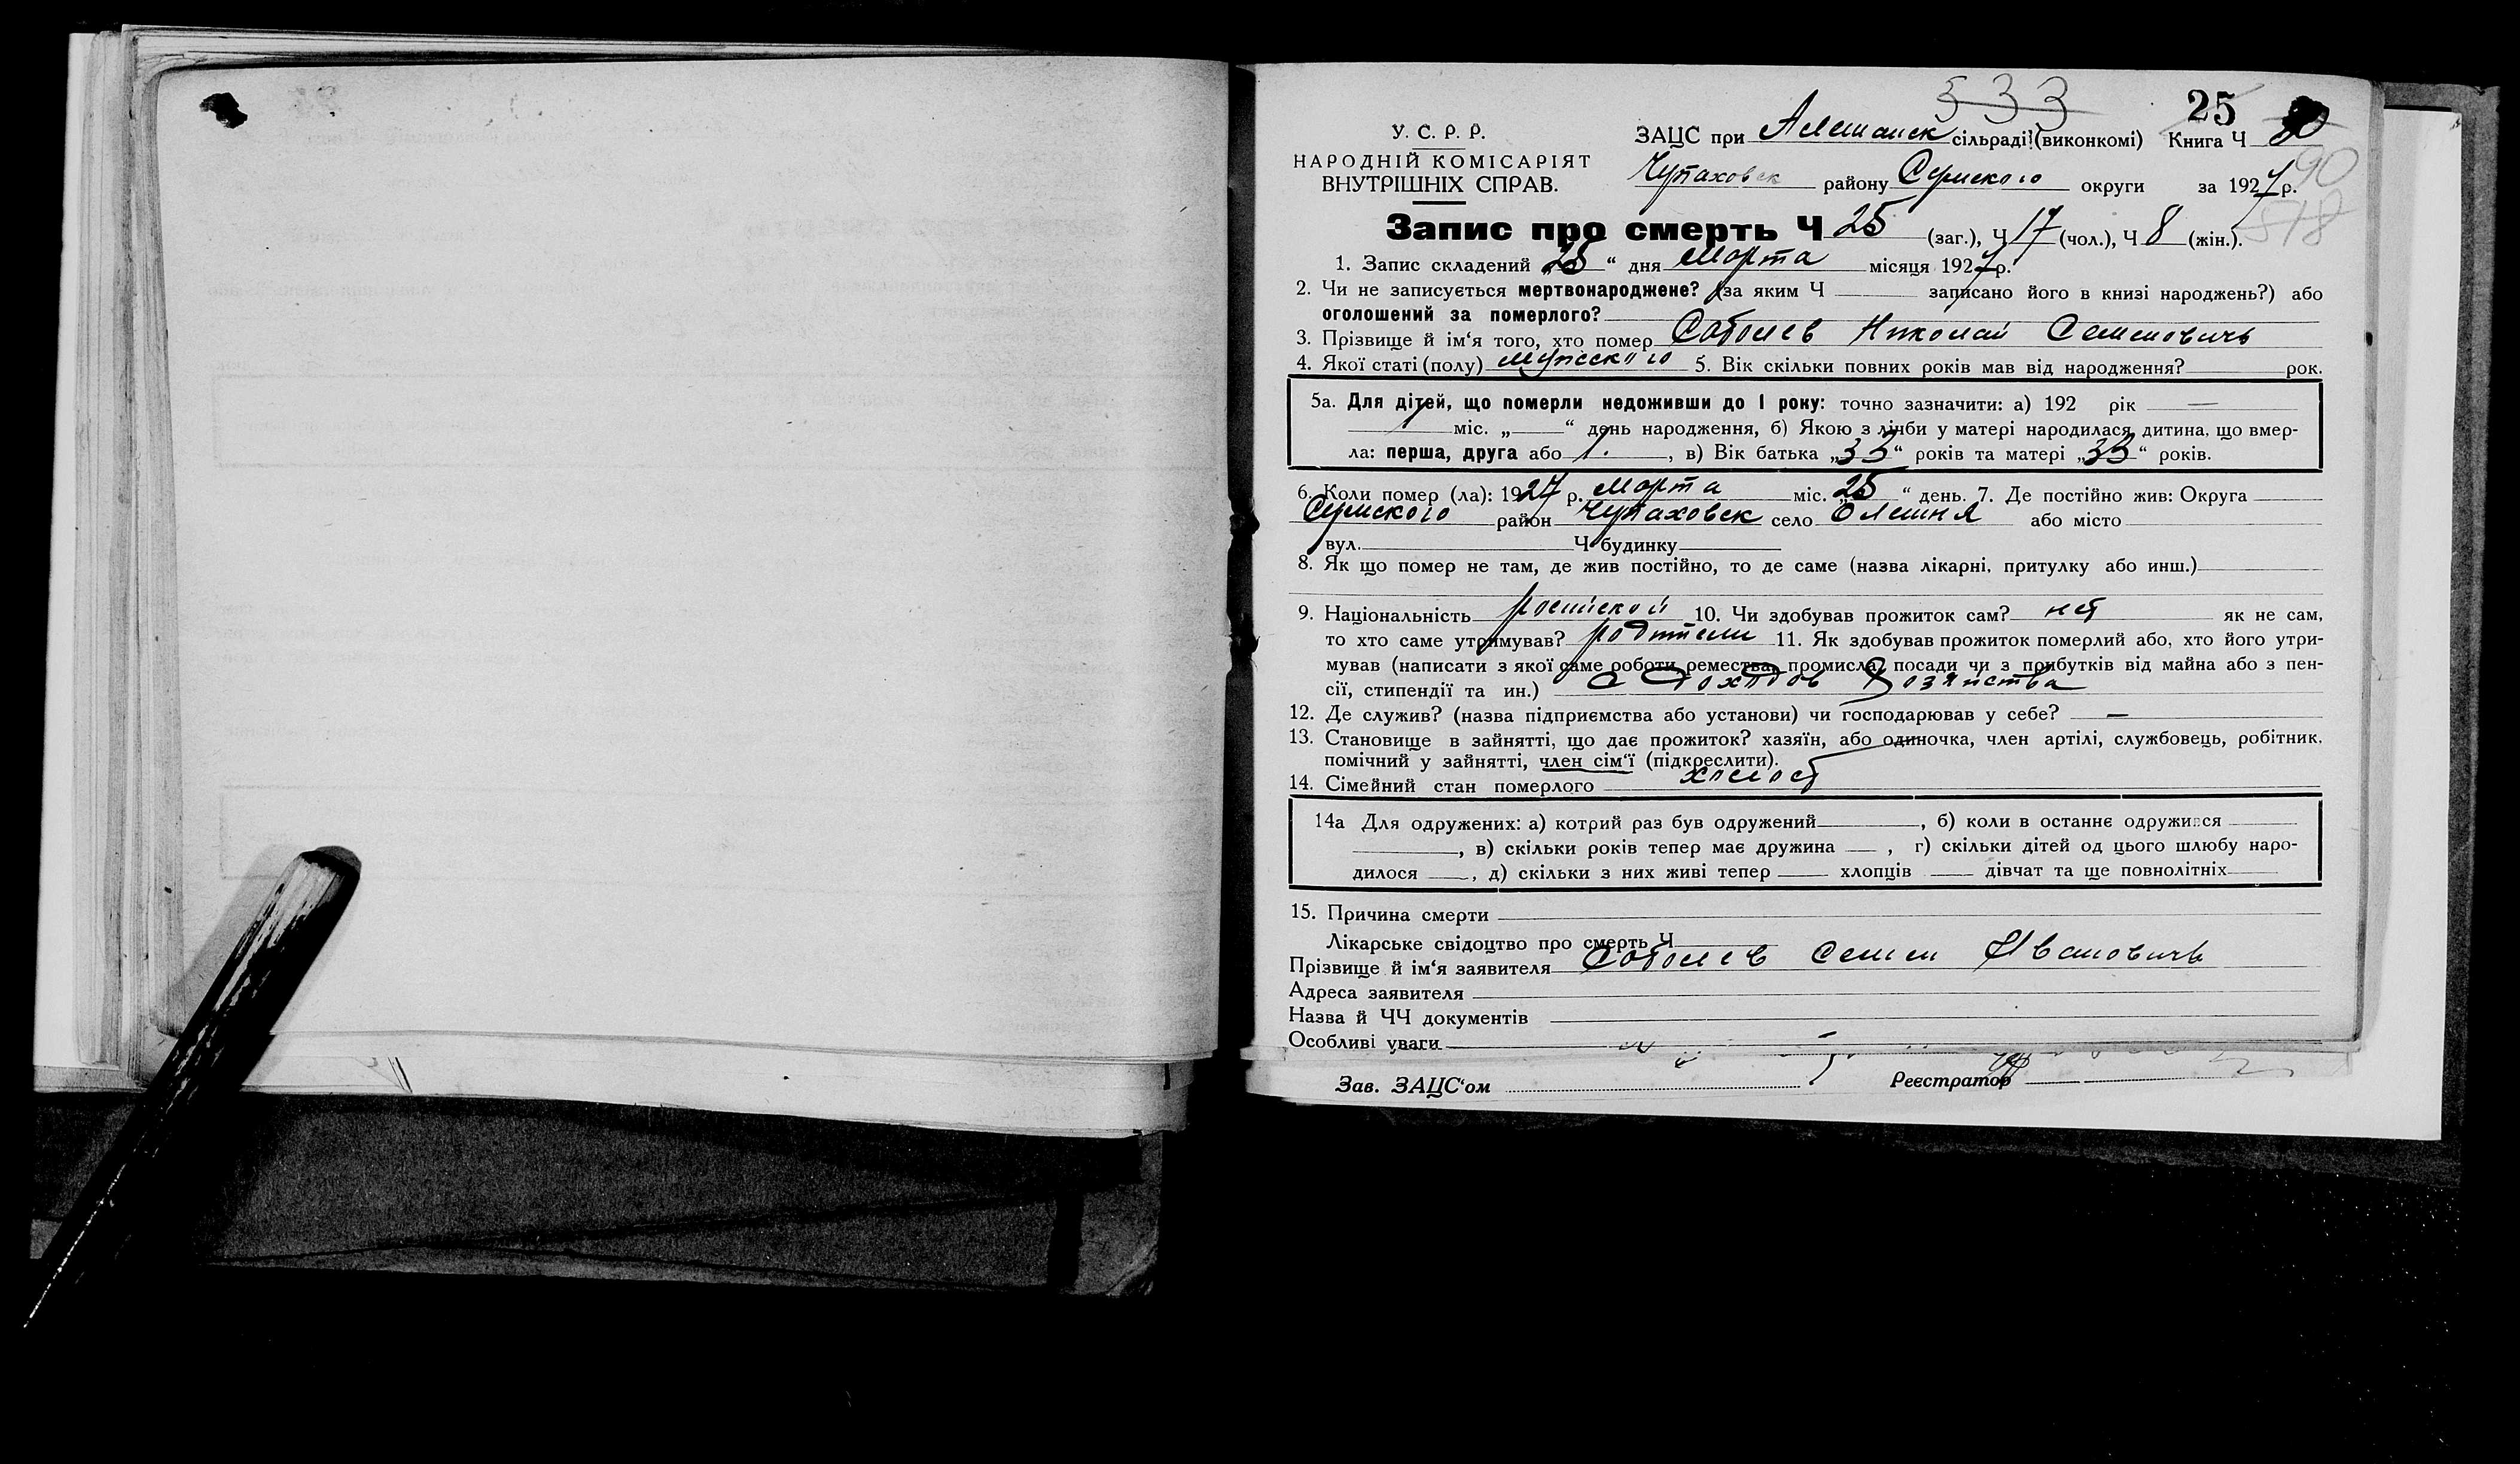 533
25
У. С. Р. Р.
НАРОДНІЙ КОМІСАРІЯТ
ВНУТРІШНІХ СПРАВ.
ЗАЦС при Алешанск сільраді (виконкомі) Книга Ч
90
Чупаховск району Сумского округи за 1927 р.
518
Запис про смерть Ч 25 (заг.), Ч 17 (чол.), Ч 8 (жін.).
1. Запис складений „28“ дня Марта місяця 1927 р.
2. Чи не записується мертвонароджене? (за яким Ч записано його в книзі народжень?) або
оголошений за померлого?
3. Прізвище й ім‘я того, хто помер Соболев Николай Семенович
4. Якої статі (полу) мужеского 5. Вік скільки повних років мав від народження? рок.
5а. Для дітей, що померли недоживши до 1 року: точно зазначити: а) 192 рік —
міс. „ “ день народження, б) Якою з лічби у матері народилася дитина, що вмер-
ла: перша, друга або 1., в) Вік батька „33“ років та матері „33“ років.
6. Коли помер (ла): 1927 р. Марта міс. „25“ день. 7. Де постійно жив: Округа
Сумского район Чупаховск село Олешня або місто
вул. Ч будинку
8. Як що помер не там, де жив постійно, то де саме (назва лікарні, притулку або инш.)
9. Національність росийской 10. Чи здобував прожиток сам? нет як не сам,
то хто саме утримував? родители 11. Як здобував прожиток померлий або, хто його утри-
мував (написати з якої саме роботи ремества, промисла, посади чи з прибутків від майна або з пен-
сії, стипендії та ин.) с доходов хозяйства
12. Де служив? (назва підприємства або установи) чи господарював у себе? —
13. Становище в зайнятті, що дає прожиток? хазяїн, або одиночка, член артілі, службовець, робітник,
помічний у зайнятті, член сім‘ї (підкреслити).
14. Сімейний стан померлого холост
14а Для одружених: а) котрий раз був одружений , б) коли в останнє одружився
, в) скільки років тепер має дружина , г) скільки дітей од цього шлюбу наро-
дилося , д) скільки з них живі тепер хлопців дівчат та ще повнолітніх
15. Причина смерти
Лікарське свідоцтво про смерть Ч
Прізвище й ім‘я заявителя Соболев Семен Ивановичь
Адреса заявителя
Назва й ЧЧ документів
Особливі уваги
Зав. ЗАЦС‘ом Реєстратор